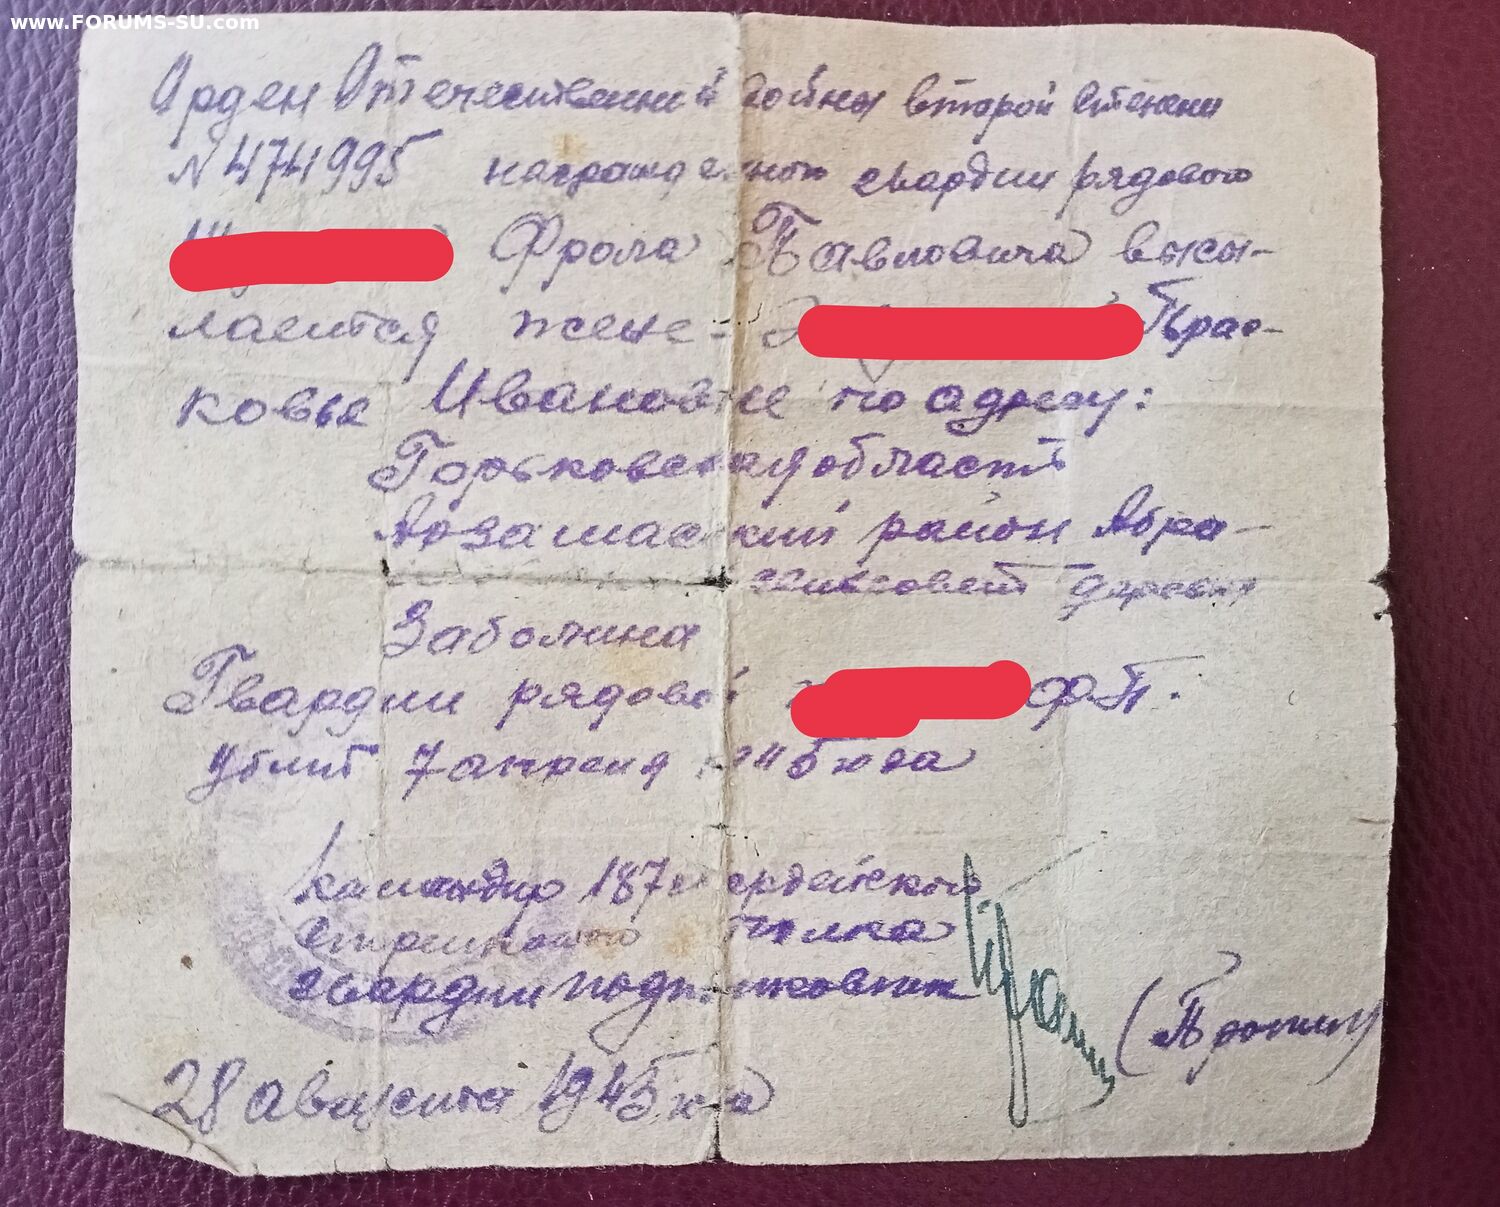 www.FORUMS-SU.com
Орден Отечественной войны второй степени
N 474995 награжденного гвардии рядового
Фрола Павловича высы-
лается жене - Прас-
ковье Ивановне по адресу:
Горьковская область
Арзамасский район Абра-
сельсовет деревня
Гвардии рядовой Ф.П.
убит 7 апреля 1945 года
Командир 187 гвардейского
стрелкового полка
гвардии подполковник
28 августа 1945 года